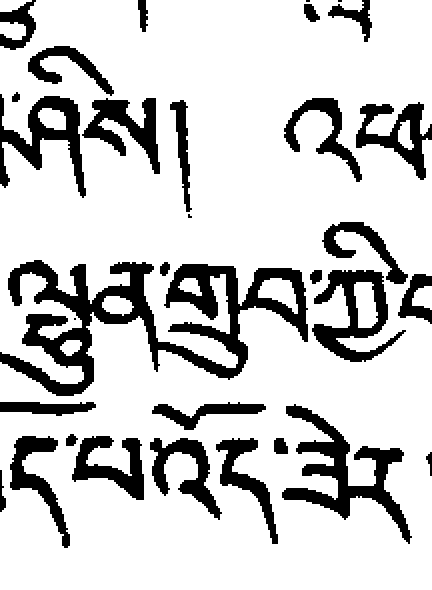 ཤིས། འཕ
ལྷུན་གྲུབ་ཀྱི
ད་པ་འོད་ཟེར